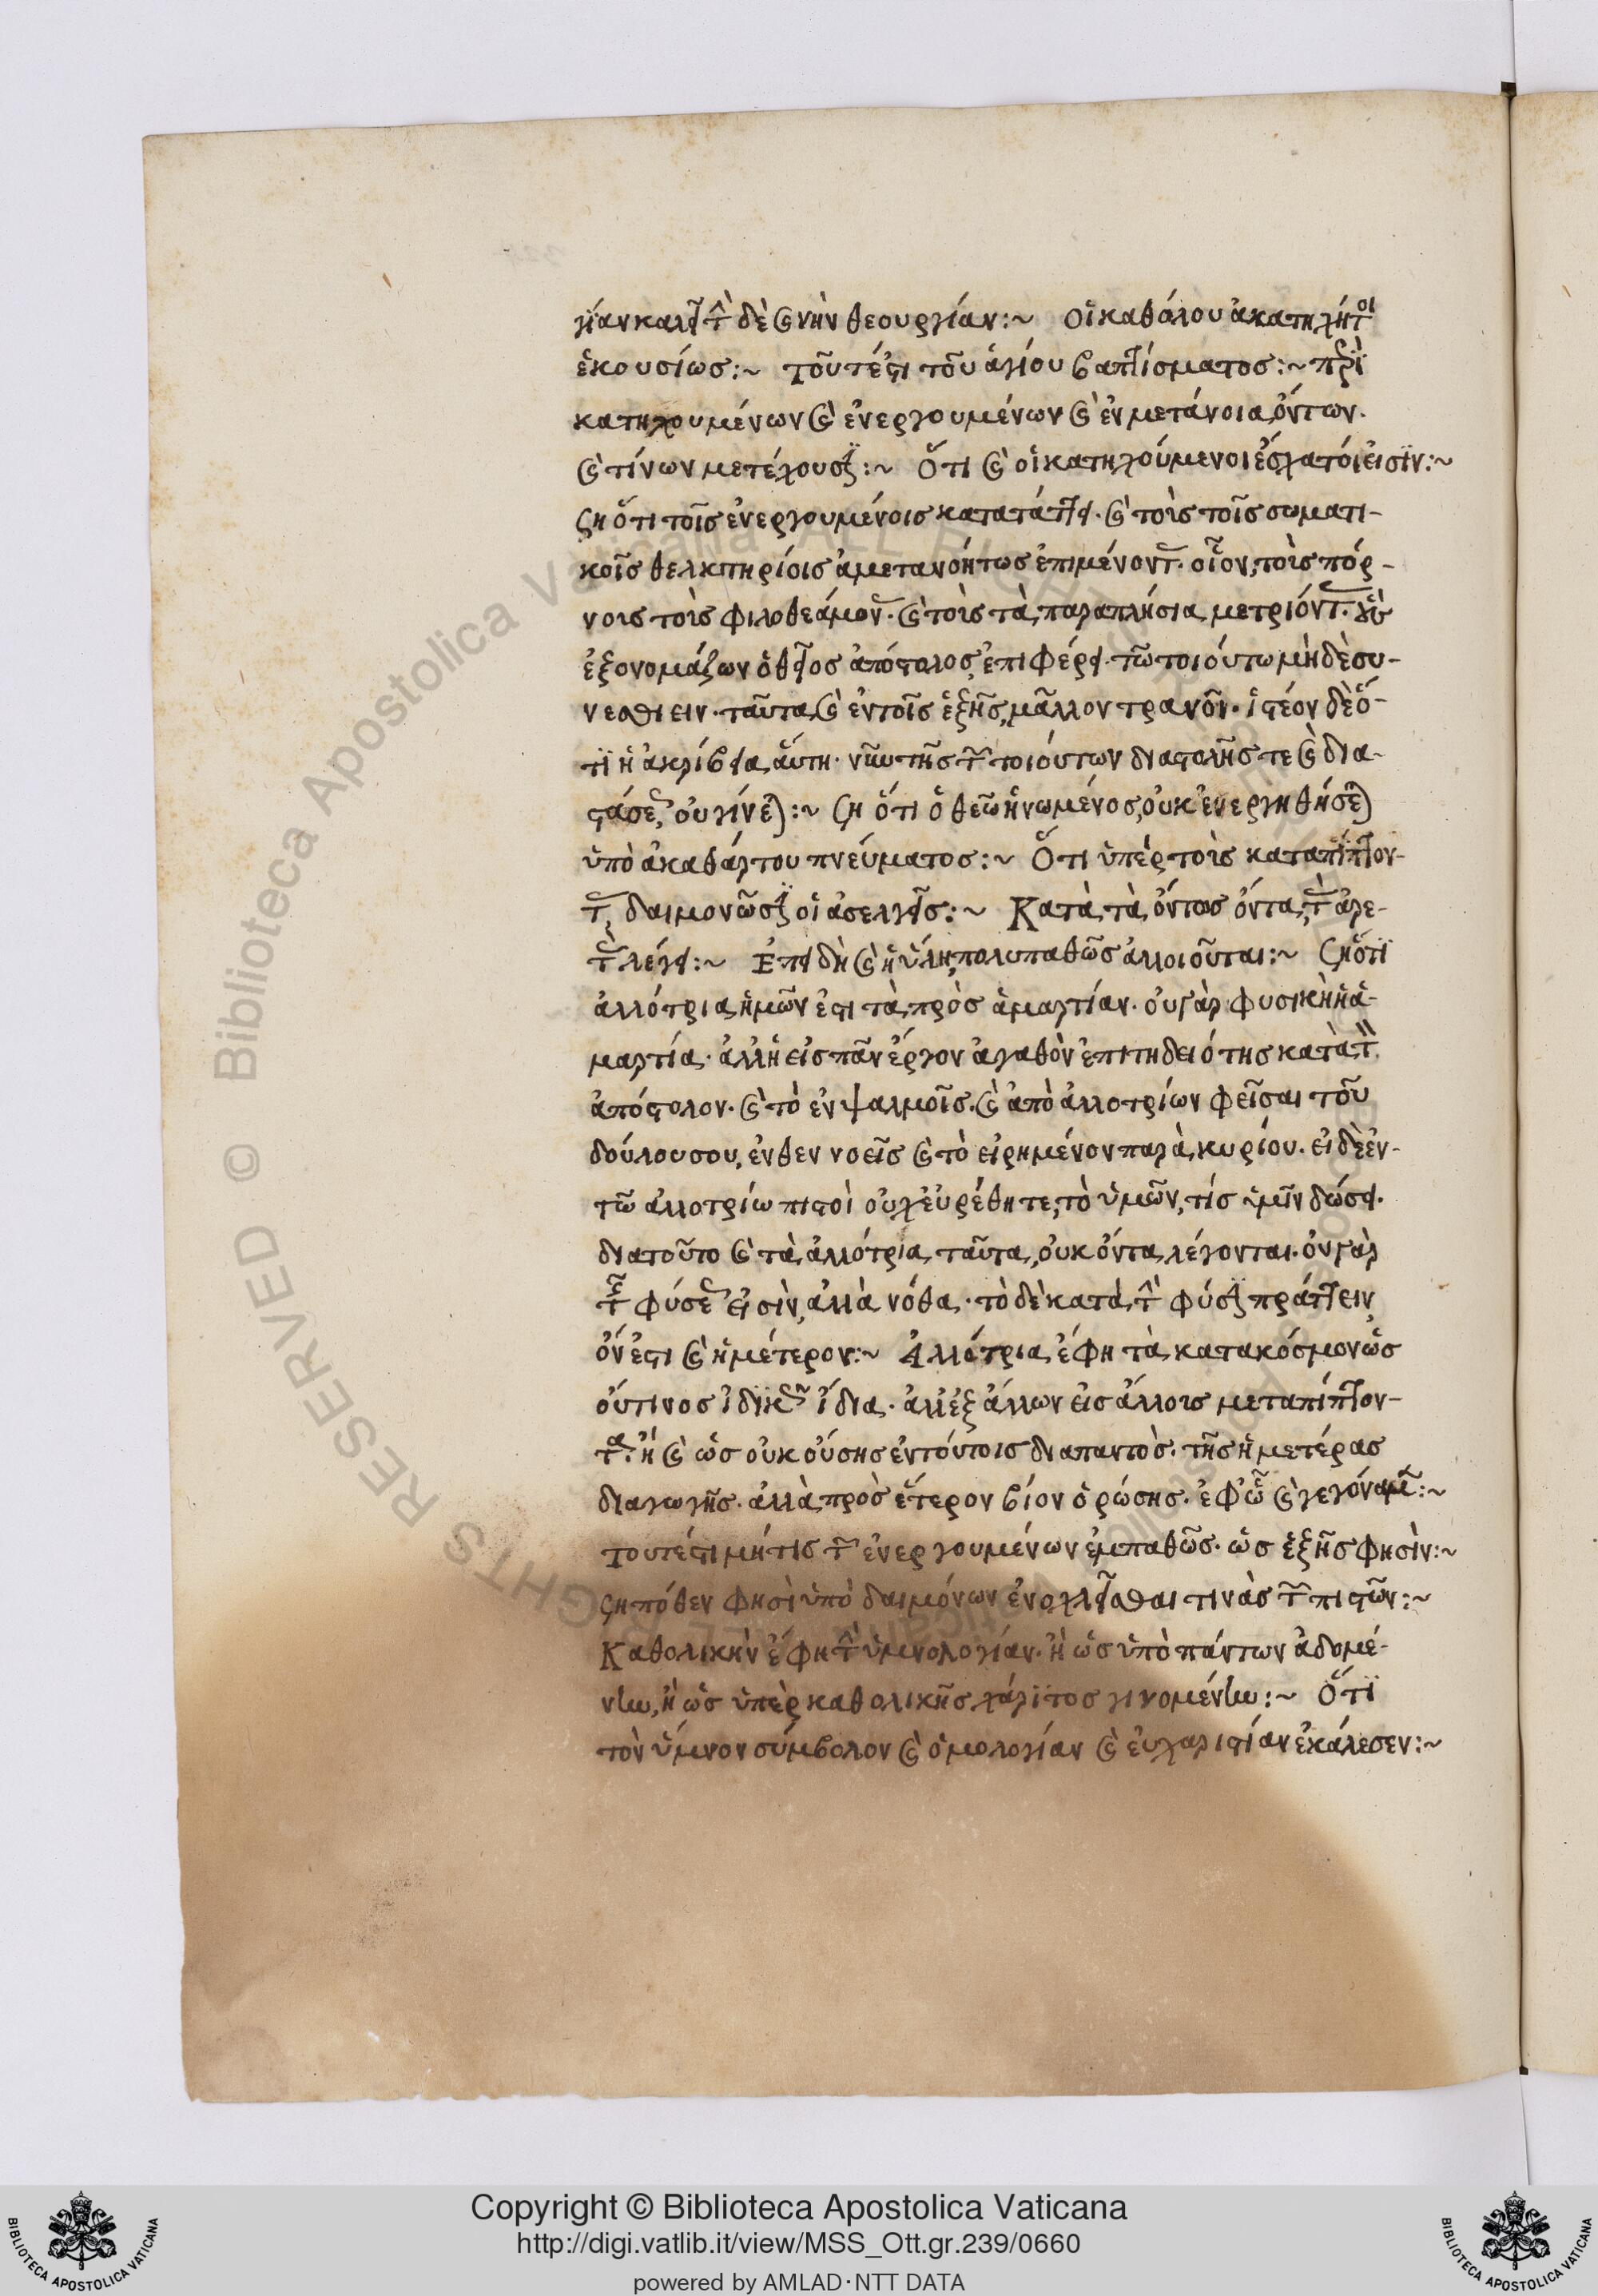 γίαν καλεῖ τὴν δὲ καινὴν θεουργίαν:~ Οἱ καθόλου ἀκατηχήτοι
ἑκουσίως:~ Τοῦτέστι τοῦ ἁγίου βαπτίσματος:~ περὶ
κατηχουμένων καὶ ἐνεργουμένων καὶ ἐν μετάνοια ὄντων.
καὶ τίνων μετέχουσιν:~ Ὅτι καὶ οἱ κατηχούμενοι ἔσχατοί εἰσϊν:~
ση ὅτι τοῖς ἐνεργουμένοις κατατάττει. καὶ τοὺς τοῖς σωματι-
κοῖς θελκτηρίοις ἀμετανοήτως ἐπιμένοντας. οἷον, τοὺς πόρ-
νους τοὺς φιλοθεάμονας. καὶ τοὺς τὰ παραπλήσια μετριόντας. οὓς
ἐξονομάζων ὁ θεῖος ἀπόστολος, ἐπιφέρει. τῶ τοιούτω μὴδὲ συ-
νεσθίειν. ταῦτα καὶ ἐν τοῖς ἑξῆς, μᾶλλον τρανοῖ. ἰστέον δὲ ὅ-
τϊ ἡ ἀκρίβεια αὕτη. τῆς τῶν τοιούτων διαστολῆς τε καὶ δια-
στάσεως, οὐ γίνεται:~ ση ὅτι ὁ θεῶ ἡνωμένος, οὐκ ἐνεργηθήσεται
ὑπὸ ἀκαθάρτου πνεύματος:~ Ὅτι ὑπὲρ τοὺς καταπίπτον-
τας, δαιμονῶσιν οἱ ἀσελγεῖς:~ Κατὰ τὰ ὄντως ὄντα, τὰς ἀρε-
τὰς λέγει:~ Ἐπειδὴ καὶ ἡ ὕλη, πολυπαθῶς ἀλλοιοῦται:~ ση ὅτϊ
ἀλλότρια ἡμῶν ἐστι τὰ πρὸς ἁμαρτίαν. οὐ γὰρ φυσικὴ ἡ ἁ-
μαρτία. ἀλλ' ἡ εἰς πᾶν ἔργον ἀγαθὸν ἐπιτηδειότης κατὰ τὸν
ἀπόστολον. καὶ τὸ ἐν ψαλμοῖς. καὶ ἀπὸ ἀλλοτρίων φεῖσαι τοῦ
δούλου σου, ἐνθεν νοεῖς καὶ τὸ εἰρημένον παρὰ κυρίου. εἰ δὲ ἐν-
τῶ ἀλλοτρίω πιστοὶ οὐχ εὑρέθητε, τὸ ὑμῶν, τίς ὑμῖν δώσει.
διατοῦτο καὶ τὰ ἀλλότρια ταῦτα, οὐκ ὄντα λέγονται. οὐ γὰρ
τῆς φύσεως εἰσὶν, ἀλλὰ νόθα. τὸ δὲ κατὰ τὴν φύσιν πράττειν,
ὄν ἐστι καὶ ἡμέτερον:~ Ἀλλότρια ἔφη τὰ κατακόσμον ὡς
οὔτινος ἰδικῶς ἴδια. ἀλλ' ἐξ ἄλλων εἰς ἄλλους μεταπίπτον-
τα. ἢ καὶ ὡς οὐκ οὔσης ἐν τούτοις διαπαντὸς. τῆς ἡμετέρας
διαγωγῆς. ἀλλὰ πρὸς ἕτερον βίον ὁρώσης. ἐφ' ὧ καὶ γεγόναμεν:~
Τουτέστι μήτις τῶν ἐνεργουμένων ἐμπαθῶς. ὡς ἑξῆς φησὶν:~
ση πόθεν φησὶ ὑπὸ δαιμόνων ἐνοχλεῖσθαι τινὰς τῶν πιστῶν:~
Καθολικὴν ἔφη τὴν ὑμνολογίαν. ἢ ὡς ὑπὸ πάντων ἀδομέ-
νην, ἢ ὡς ὑπὲρ καθολικῆς χάρϊτος γινομένην:~ Ὅτϊ
τὸν ὕμνον σύμβολον καὶ ὁμολογίαν καὶ εὐχαριστίαν ἐκάλεσεν:~
Copyright © Biblioteca Apostolica Vaticana
http://digi.vatlib.it/view/MSS_Ott.gr.239/0660
powered by AMLAD·NTT DATA